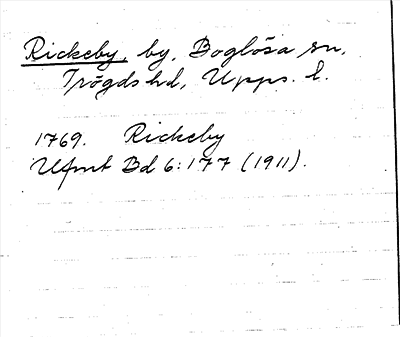 Rickeby, by, Boglösa sn,
Trögds hd, Upps. l.
1769. Rickeby
Ufmt Bd 6:177 (1911).